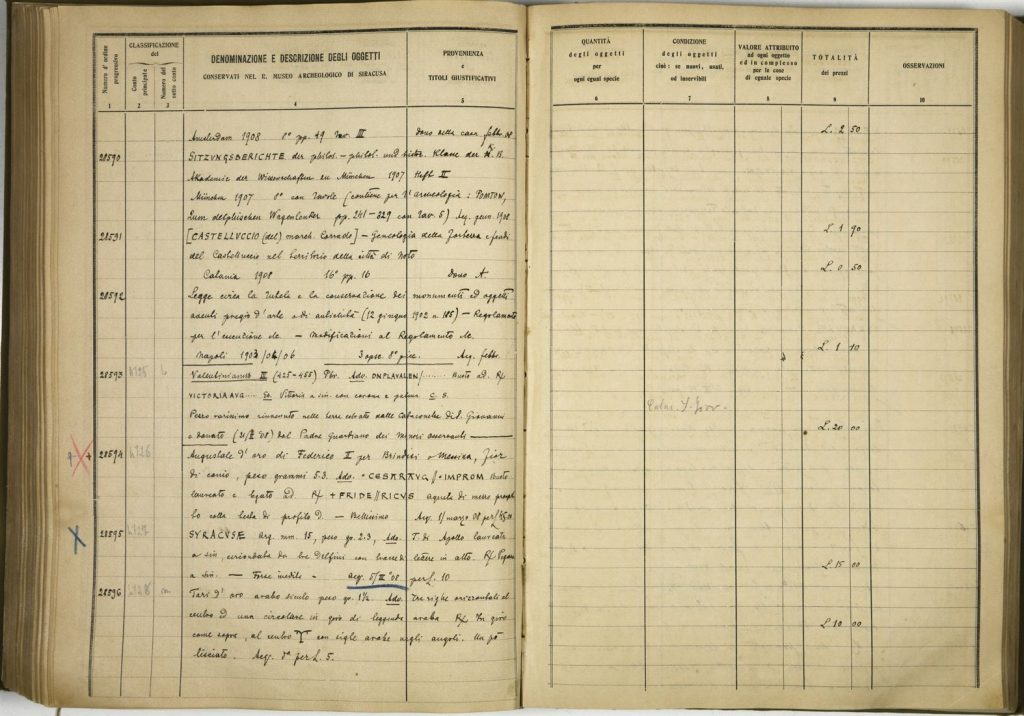 Numero d'ordine progressivo
CLASSIFICAZIONE del
Conto principale
Numero del sotto conto
DENOMINAZIONE E DESCRIZIONE DEGLI OGGETTI
CONSERVATI NEL R. MUSEO ARCHEOLOGICO DI SIRACUSA
PROVENIENZA
e
TITOLI GIUSTIFICATIVI
1 2 3 4 5
Amsterdam 1908 8° pp. 49 tav. III Dono della casa febb. 08
28590 SITZUNGSBERICHTE der philos. - philol. und histor. Klasse der K. B.
Akademie der Wissenschaften zu München 1907 Heft II
München 1907 8° con tavole (contiene per l'archeologia: POMTOW,
Zum delphischen Wagenlenker pp. 241-329 con tav. 5) Acq. genn. 1908
28591 [CASTELLUCCIO (del) march. Corrado] - Genealogia della
del Castelluccio nel territorio della città di Noto
Catania 1908 16° pp. 16 Dono A
28592 Legge circa la tutela e la conservazione dei monumenti ed oggetti
aventi pregio d'arte o di antichità (12 giugno 1902 n. 185) - Regolamento
per l'esecuzione - Modificazioni al Regolamento
Napoli 3 opsc. 8° picc. Acq. febbr.
28593 4725 Valentinianus III (425-455) Pbr. Ado. DNPLAVALEN/...... Busto ad. R/
VICTORIA AVG Vittoria a sin. con corona e palma C. 5.
Pezzo rarissimo rinvenuto nelle terre estratte dalle catacombe di S. Giovanni
e donato dal Padre Guardiano dei Minori osservanti
28594 4726 Augustale d'oro di Federico II per Brindisi o Messina, fior
di conio, peso grammi 5.3. Ado. • CESAR AVG // • IMPROM Busto
laureato e ad. R/ + FRIDE // RICVS aquila di
colla testa di profilo d. - Bellissimo Acq. 1/ marzo 08 per
28595 4727 SYRACVSE arg. mm. 15, peso gr. 2.3, Ado. T. di laureata
a sin. circondata da tre Delfini con in atto. R/
a sin. - Forse inedito - Acq. 5/III° 08 per L. 10
28596 4728 Tarì d'oro arabo siculo peso gr. 1½ Ado. Tre righe orizzontali al
centro ed una circolare in giro di leggenda araba R/ In giro
come sopra, al centro con sigle arabe negli angoli. Un pò
lisciato. Acq. d° per L. 5.
QUANTITÀ
degli oggetti
per
ogni egual specie
CONDIZIONE
degli oggetti
cioè: se nuovi, usati,
od inservibili
VALORE ATTRIBUITO
ad ogni oggetto
ed in complesso
per le cose
di eguale specie
TOTALITÀ
dei prezzi
OSSERVAZIONI
6 7 8 9 10
L. 2 50
L. 1 90
L. 0 50
L. 1 10
L. 20 00
L. 15 00
L. 10 00